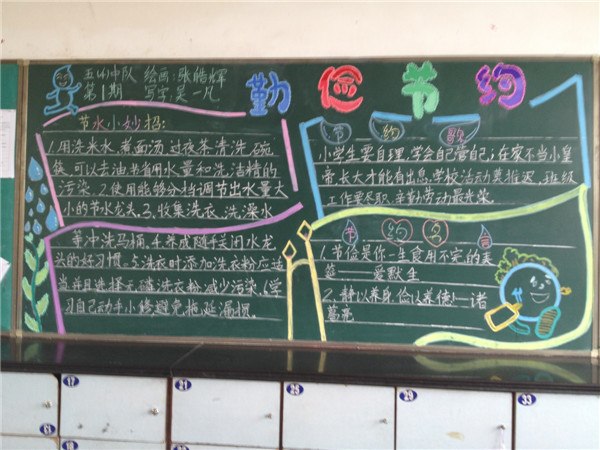 五(4)中队 绘画:张皓辉
第1期 写字吴一凡
勤俭节约
节水小妙招:
1.用洗米水、煮面汤、过夜茶清洗碗
筷,可以去油,省用水量和洗洁精的
污染。2.使用能够分档调节出水量大
小的节水龙头。3.收集洗衣、洗澡水
等冲洗马桶。4.养成随手关闭水龙
头的好习惯。5.洗衣时添加洗衣粉应适
当,并且选择无磷洗衣粉,减少污染。6.学
习自己动手小修避免拖延漏损。
节约歌
小学生要自理,学会自己管自己;在家不当小皇
帝,长大才能有出息。学校活动莫推迟,班级
工作要尽职,辛勤劳动最光荣。
节约名言
1.节俭是你一生食用不完的美
筵——爱默生
2.静以养身,俭以养德!——诸
葛亮
17
21
25
29
33